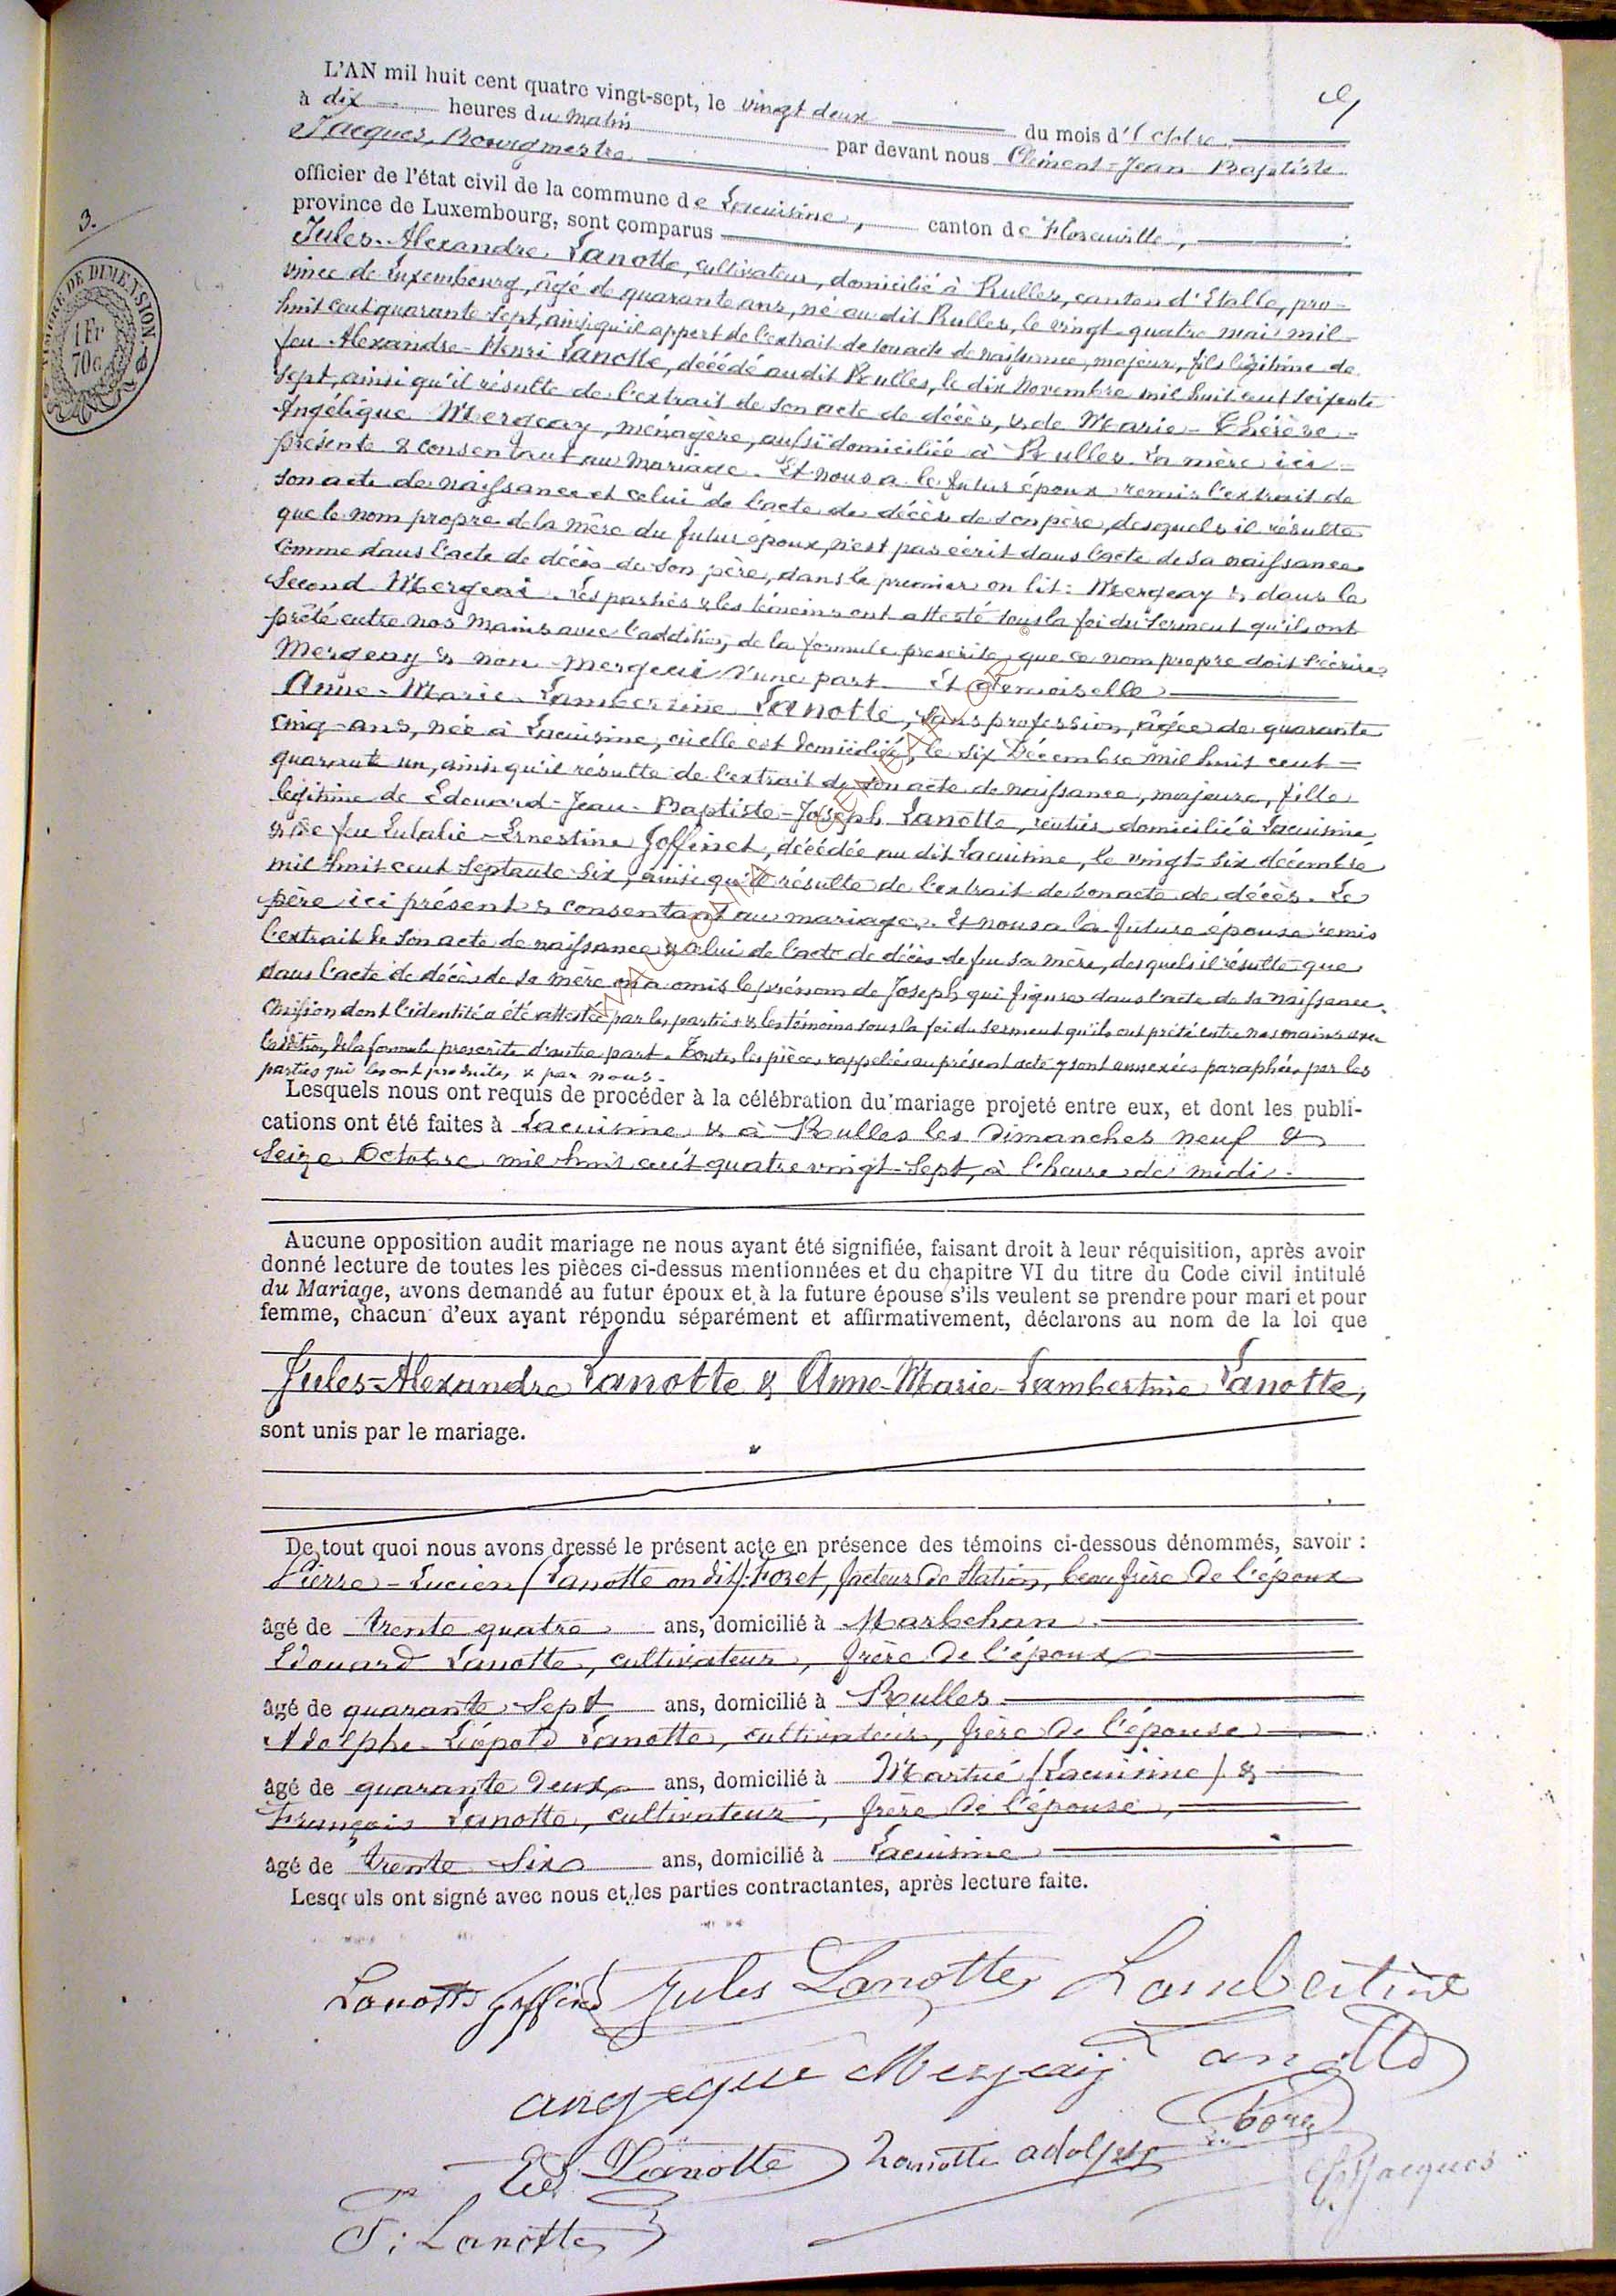 L'AN mil huit cent quatre vingt-sept, le vingt deux du mois d'Octobre
à dix heures du matin par devant nous Clément-Jean Baptiste
Jacques, Bourgmestre
officier de l'état civil de la commune de Lacuisine, canton de Florenville,
province de Luxembourg, sont comparus
3.
TIMBRE DE DIMENSION
1 Fr
70c
Jules-Alexandre Lanotte, cultivateur, domicilié à Rulles, canton d'Etalle, pro-
vince de Luxembourg, âgé de quarante ans, né au dit Rulles, le vingt-quatre mai mil
huit cent quarante sept, ainsi qu'il appert de l'extrait de son acte de naissance, majeur, fils légitime de
feu Alexandre-Henri Lanotte, décédé audit Rulles, le dix novembre mil huit cent soixante
sept, ainsi qu'il résulte de l'extrait de son acte de décès, & de Marie-Thérèse-
Angélique Mergeay, ménagère, aussi domiciliée à Rulles. La mère ici
présente & consentant au mariage. Et nous a le futur époux remis l'extrait de
son acte de naissance et celui de l'acte de décès de son père, desquels il résulte
que le nom propre de la mère du futur époux, n'est pas écrit dans l'acte de sa naissance
comme dans l'acte de décès de son père, dans le premier on lit: Mergeay & dans le
second Mergeai. Les parties & les témoins ont attesté sous la foi du serment qu'ils ont
prêté entre nos mains avec l'addition de la formule prescrite, que ce nom propre doit s'écrire
Mergeay & non Mergeai d'une part Et demoiselle
Anne-Marie-Lambertine Lanotte, sans profession, âgée de quarante
cinq ans, née à Lacuisine, où elle est domiciliée, le six Décembre mil huit cent
quarante un, ainsi qu'il résulte de l'extrait de son acte de naissance, majeure, fille
légitime de Edouard-Jean-Baptiste-Joseph Lanotte, rentier, domicilié à Lacuisine
& de feu Eulalie-Ernestine Joffinet, décédée au dit Lacuisine, le vingt-six décembre
mil huit cent septante six, ainsi qu'il résulte de l'extrait de son acte de décès. Le
père ici présent & consentant au mariage. Et nous a la future épouse remis
l'extrait de son acte de naissance & celui de l'acte de décès de feu sa mère, desquels il résulte que
dans l'acte de décès de sa mère on a omis le prénom de Joseph qui figure dans l'acte de sa naissance.
Omission dont l'identité a été attestée par les parties & les témoins sous la foi du serment qu'ils ont prêté entre nos mains avec
l'addition de la formule prescrite d'autre part. Toutes les pièces rappelées au présent acte y sont annexées paraphées par les
parties qui les ont produites & par nous.
Lesquels nous ont requis de procéder à la célébration du mariage projeté entre eux, et dont les publi-
cations ont été faites à Lacuisine & à Rulles les Dimanches neuf &
Seize Octobre mil huit cent quatre vingt-Sept, à l'heure de midi.
Aucune opposition audit mariage ne nous ayant été signifiée, faisant droit à leur réquisition, après avoir
donné lecture de toutes les pièces ci-dessus mentionnées et du chapitre VI du titre du Code civil intitulé
du Mariage, avons demandé au futur époux et à la future épouse s'ils veulent se prendre pour mari et pour
femme, chacun d'eux ayant répondu séparément et affirmativement, déclarons au nom de la loi que
Jules-Alexandre Lanotte & Anne-Marie-Lambertine Lanotte,
sont unis par le mariage.
De tout quoi nous avons dressé le présent acte en présence des témoins ci-dessous dénommés, savoir :
Pierre-Lucien (Lanotte on dit) Foret, facteur de Station, beau frère de l'époux
âgé de trente quatre ans, domicilié à Marbehan
Edouard Lanotte, cultivateur, frère de l'époux
âgé de quarante Sept ans, domicilié à Rulles
Adolphe Léopold Lanotte, cultivateur, frère de l'épouse
âgé de quarante deux ans, domicilié à Martué (Lacuisine) &
François Lanotte, cultivateur, frère de l'épouse,
âgé de trente Six ans, domicilié à Lacuisine
Lesquels ont signé avec nous et les parties contractantes, après lecture faite.
Lanotte Joffinet Jules Lanotte Lambertine
Mergeay Lanotte
Ed Lanotte Lanotte adolphe Foret
Jacques
F: Lanotte